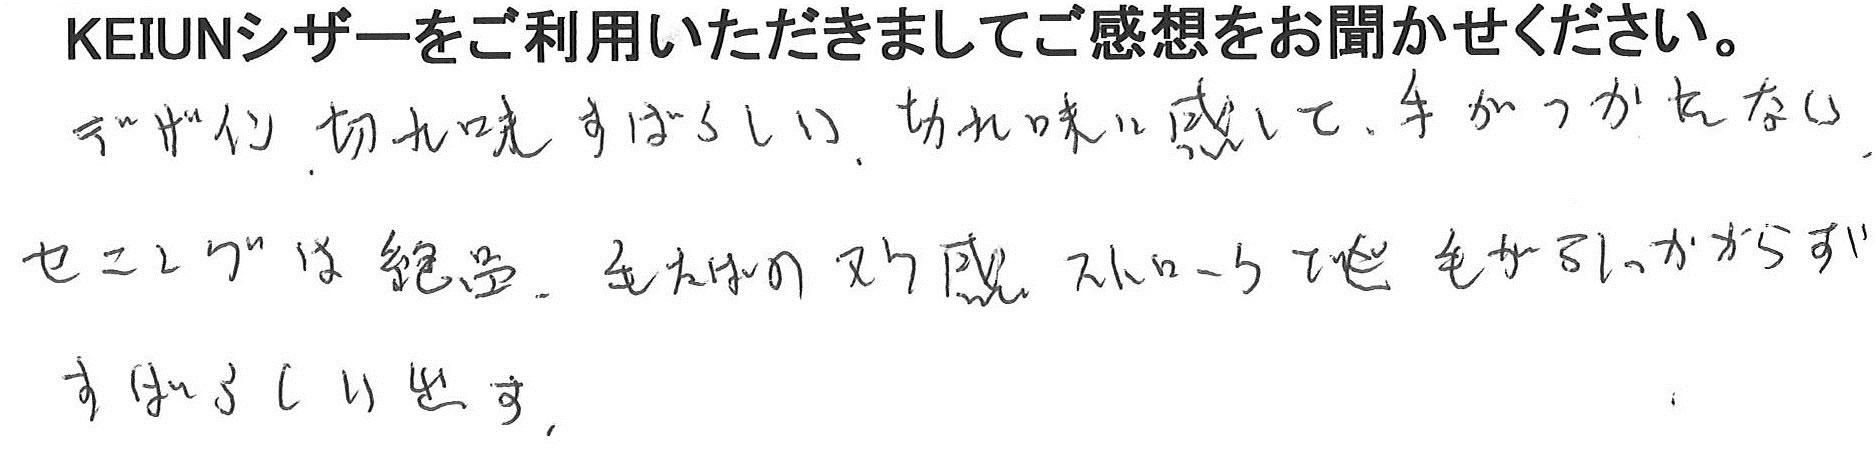 KEIUNシザーをご利用いただきましてご感想をお聞かせください。
デザイン、切れ味すばらしい、切れ味に感して、手がつかれない、
セニングは絶品、毛たばのヌケ感 ストロークでも 毛が引っかからず
すばらしいです、